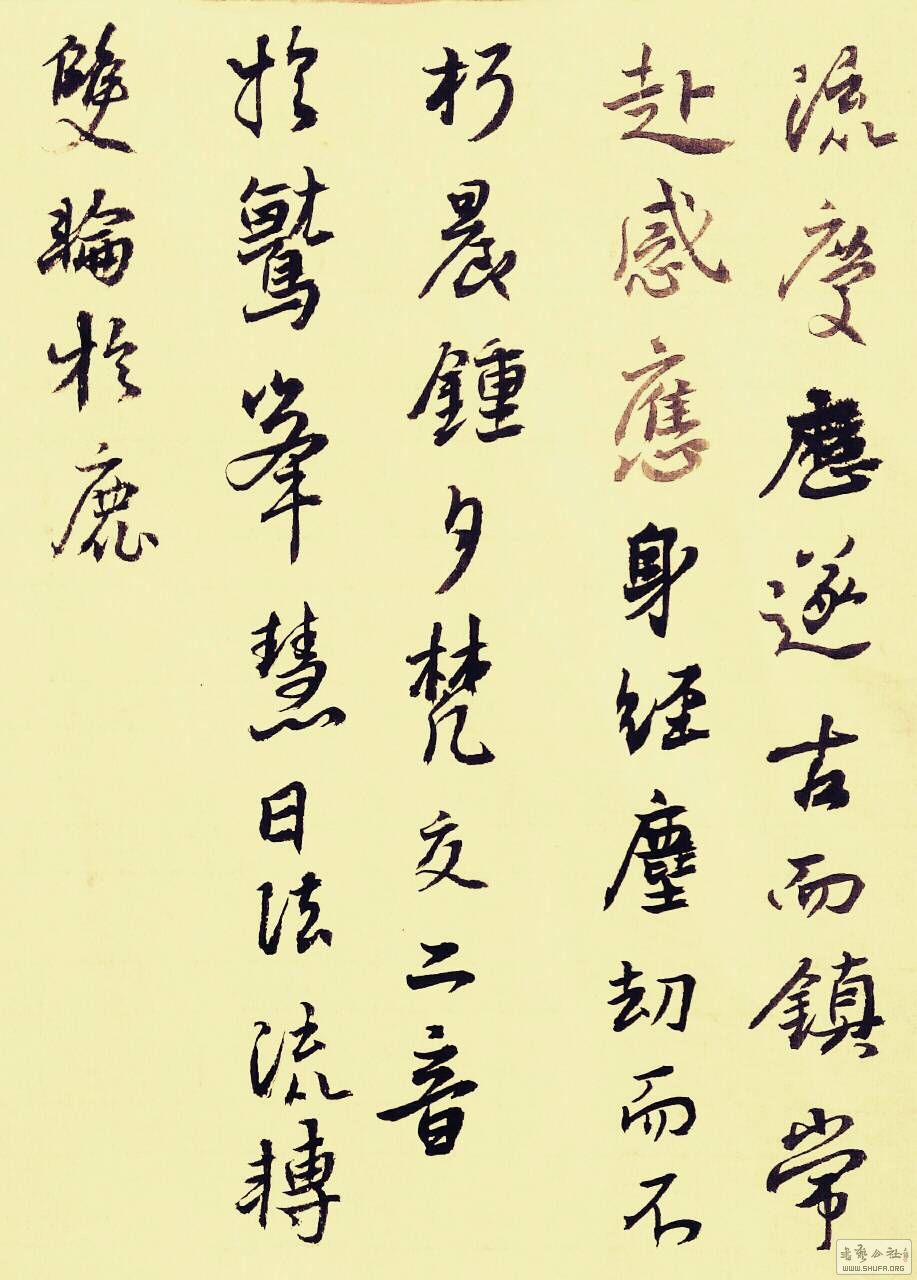 流慶歷遂古而鎮常
赴感應身經塵劫而不
朽晨鍾夕梵交二音
於鷲峯慧日法流轉
雙輪於鹿
書藝公社
WWW.SHUFA.ORG